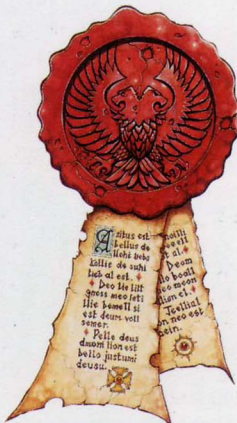 Anitus est
bellus de
llchi bebs
kallic de suhi
beb al est.
Deo lie liit
gness meo seti
llie bemell si
est deum voll
semer.
Pelle deus
dmom lion est
bello justumi
deusu.
noilli
oo ell
t al.
Deom
llo booll
eo meon
llon ei.
Tcellial
on neo est
bein.